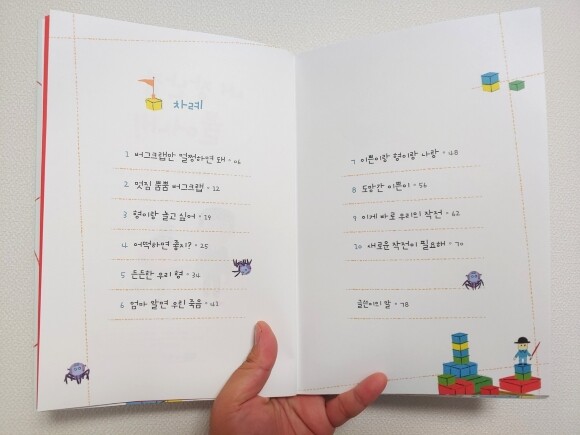 차례
1 버그크랩만 멀쩡하면 돼 • 06
2 멋짐 뿜뿜 버그크랩 • 12
3 형이랑 놀고 싶어 • 19
4 어떡하면 좋지? • 25
5 든든한 우리 형 • 34
6 엄마 알면 우린 죽음 • 41
7 이쁜이랑 형이랑 나랑 • 48
8 도망간 이쁜이 • 56
9 이제 바로 우리의 작전 • 62
10 새로운 작전이 필요해 • 70
글쓴이의 말 • 78